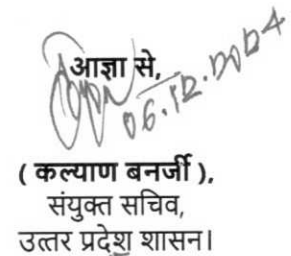 आज्ञा से,
06.12.2024
( कल्याण बनर्जी ),
संयुक्त सचिव,
उत्तर प्रदेश शासन।